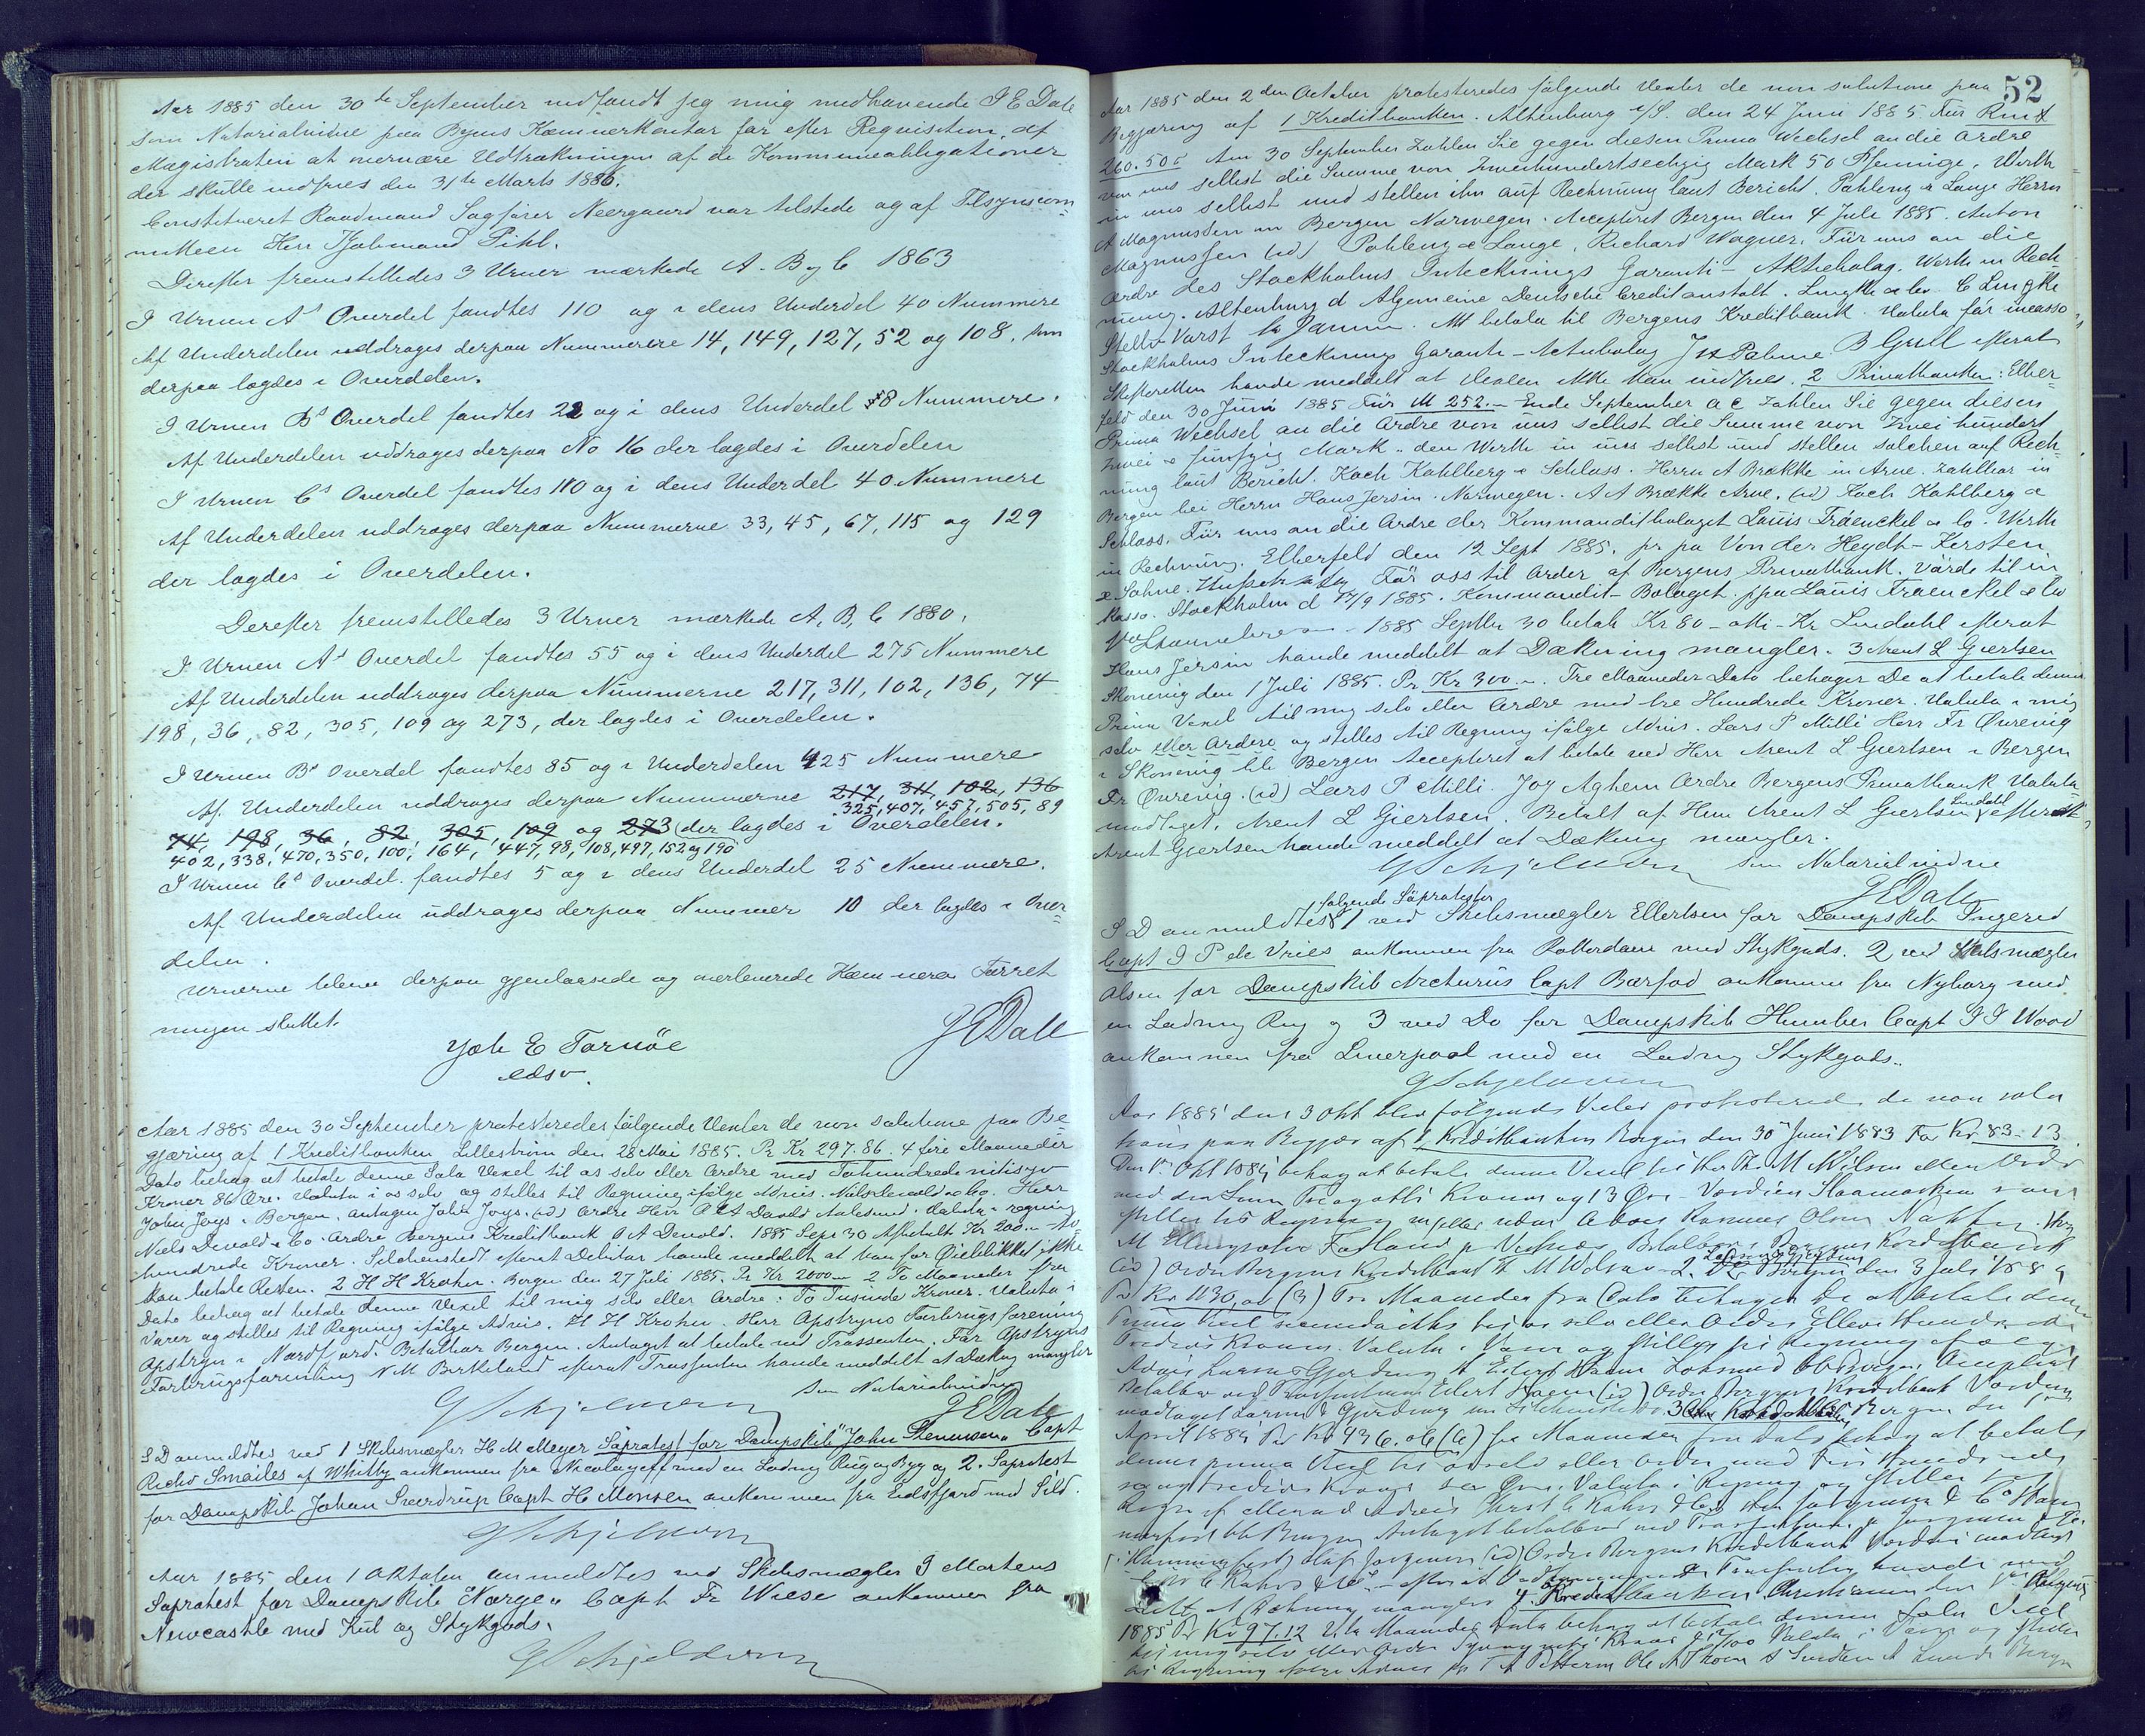 Aar 1885 den 30te September indfandt jeg mig medhavende J E Dale
som Notarialvidne paa Byens Kæmnerkontor for efter Requisition af
Magistraten at nærvære Udtrækningen af de Kommuneobligationer
der skulle indfries den 31te Marts 1886.
Constitueret Raadmand Sagfører Neergaard var tilstede og af Tilsynscom-
mitteen Herr Kjøbmand Pihl.
Derefter fremstilledes 3 Urner mærkede A. B og C 1863
I Urnen As Overdel fandtes 110 og i dens Underdel 40 Nummere
Af Underdelen uddroges derpaa Nummerere 14, 149, 127, 52 og 108, som
derpaa lagdes i Overdelen.
I Urnen Bs Overdel fandtes 22 og i dens Underdel 8 Nummere.
Af Underdelen uddroges derpaa No 16 der lagdes i Overdelen
I Urnen Cs Overdel fandtes 110 og i dens Underdel 40 Nummere
Af Underdelen uddroges derpaa Nummerne 33, 45, 67, 115 og 129
der lagdes i Overdelen.
Derefter fremstilledes 3 Urner mærkede A, B, C 1880.
I Urnen As Overdel fandtes 55 og i dens Underdel 275 Nummere
Af Underdelen uddroges derpaa Nummerne 217, 311, 102, 136, 74
198, 36, 82, 305, 109 og 273, der lagdes i Overdelen.
I Urnen Bs Overdel fandtes 85 og i Underdelen 425 Nummere
Af Underdelen uddroges derpaa Nummerne 217, 311, 102, 136
325, 407, 457, 505, 89
74, 198, 36, 82, 305, 109 og 273 der lagdes i Overdelen.
402, 338, 470, 350, 100, 164, 447, 98, 108, 497, 152 og 190
I Urnen Cs Overdel fandtes 5 og i dens Underdel 25 Nummere.
Af Underdelen uddroges derpaa Nummer 10 der lagdes i Over-
delen.
Urnerne bleve derpaa gjenlaasede og overleverede Kæmneren Forret
ningen sluttet.
Joh E Tornöe
edsv.
J E Dale
Aar 1885 den 30 September protesteredes følgende Vexler de non solutione paa Be
gjæring af 1 Kreditbanken Lilleström den 28 Mai 1885. Pr Kr 297.86. 4 fire Maaneder
Dato behag at betale denne Sola Vexel til os selv eller Ordre med Tohundrede nitisyv
Kroner 86 Øre. Valuta i os selv og stilles til Regning ifølge Advis. Niels Devold & Co. Herr
John Joys i Bergen. antagen John Joys. (id) Ordre Herr O A Devold Aalesund. Valuta i regning
Niels Devold & Co. Ordre Bergens Kreditbank O A Devold. 1885 Sept 30 Afbetalt Kr 200.- to
hundrede Kroner. efterat Debitor havde meddelt at han for Øieblikket ikke
kan betale Resten. 2 H H Krohn. Bergen den 27 Juli 1885. Pr Kr 2000.- 2 To Maaneder fra
Dato behag at betale denne Vexel til mig selv eller Ordre: To Tusinde Kroner. Valuta i
Varer og stilles til Regning ifølge Advis. H H Krohn. Herr Opstryns Forbrugsforening
Opstryn i Nordfjord. Betalbar Bergen. Antaget at betale ved Trassenten. For Opstryns
Forbrugsforening N M Berkeland efterat Trassenten havde meddelt at Dækning mangler
G Schjelderup
som Notarialvidne
J E Dale
S D anmeldtes ved 1 Skibsmægler H M Meyer Søprotest for Dampskib "John Stevenson" Capt
Richd Smailes af Whitby ankommen fra Nicolajeff med en Ladning Rug og Byg og 2. Søprotest
for Dampskib Johan Sverdrup Capt H Monsen ankommen fra Eidsfjord med Sild.
G Schjelderup
Aar 1885 den 1 Oktober anmeldtes ved Skibsmægler J Mortens
Søprotest for Dampskib "Norge" Capt Fr Wiese ankommen fra
Newcastle med Kul og Stykgods.
G Schjelderup
52
Aar 1885 den 2den October protesteredes følgende Vexler de non solutione paa
Begjæring af 1 Kreditbanken. Altenburg s/S. den 24 Juni 1885. Für Rm
260.50. Am 30 September zahlen Sie gegen diesen Prima Wechsel an die Ordre
von uns selbst die Summe von Zweihundertsechzig Mark 50 Pfennige. Werth
in uns selbst und stellen ihn auf Rechnung laut Bericht. Pohlenz & Lange Herrn
A Magnussen in Bergen Norwegen. Accepteret Bergen den 4 Juli 1885. Anton
Magnussen (id) Pohlenz & Lange, Richard Wagner. Für uns an die
Ordre des Stockholms Intecknings Garanti-Aktiebolag. Werth in Rech
nung. Altenburg d Algemeine Deutsche Creditanstalt. Lingke & Co. C Lingke
Stellv Vorst. Att betala til Bergens Kreditbank. Valuta får incasso
Stockholms Intecknings Garanti-Actiebolag J H Palme B Gull efterat
Skifteretten havde meddelt at Vexlen ikke kan indfries. 2 Privatbanken: Elber-
feld den 30 Juni 1885 Für M 252.- Ende September a c zahlen Sie gegen diesen
Prima Wechsel an die Ordre von uns selbst die Summe von Zwei hundert
zwei & fünfzig Mark. den Werth in uns selbst und stellen solchen auf Rech-
nung laut Bericht. Koch Kohlberg & Schloss. Herrn A Brække in Arne. zahlbar in
Bergen bei Herrn Hans Jersin. Norwegen. A A Brække Arne. (id) Koch Kohlberg &
Schloss. Für uns an die Ordre der Kommanditbolaget Louis Fraenckel & Co. Werth
in Rechnung. Elberfeld den 12 Sept 1885. pr pa Von der Heydt-Kersten
& Söhne. För oss til Order af Bergens Privatbank. värde til in
kasso. Stockholm d 15/9 1885. Kommandit-Bolaget. ppa Louis Fraenckel & Co
1885 Septbr 30 betalt Kr 80 - otti - Kr Lindahl efterat
Hans Jersin havde meddelt at Dækning mangler. 3 Arent L Gjertsen
Skonevig den 1 Juli 1885. Pr Kr 300.-. Tre Maaneder Dato behager De at betale denne
Prima Vexel til mig selv eller Ordre med tre Hundrede Kroner. Valuta i mig
selv eller Ordere og stilles til Regning ifølge Advis. Lars P Milli Herr Fr Øvrevig
i Skonevig bb Bergen Accepteret at betale ved Herr Arent L Gjertsen i Bergen
Fr Øvrevig. (id) Lars P Milli. Joy Aghem Ordre Bergens Privatbank Valuta
modtaget. Arent L Gjertsen. Betalt af Herr Arent L Gjertsen Lindahl efterat
Arent Gjertsen havde meddelt at Dækning mangler.
G Schjelderup som Notarialvidne
J E Dale
følgende Søprotester
S D anmeldtes 1 ved Skibsmægler Ellertsen for Dampskib Ingerid
Capt J P de Vries ankommen fra Rotterdam med Stykgods. 2 ved Skibsmægler
Olsen for Dampskib Arcturus Capt Barfod ankommen fra Nyborg med
en Ladning Rug og 3 ved Do for Dampskib Humber Capt J J Wood
ankommen fra Liverpool med en Ladning Stykgods.
G Schjelderup
Aar 1885 den 3 Okt blev følgende Vexler protesterede de non solu
tione paa Begjær af 1, Kreditbanken Bergen den 30 Juni 1883 For Kr. 83-13
Den 1. Okt 1885 behag at betale denne Vexel til Hr Th. M Wilson eller Ordre
med den Sum Tre og otti Kroner og 13 Øre
stilles til Regning Rasmus Olsen
Betalbar Bergens Kreditbank
(id) Ordre Bergens Kreditbank Th M Wilson - 2. Bergen den 3 Juli 1885
Pr Kr 1130,00 (3) Tre Maaneder fra Dato behager De at betale denne
Prima Vexel til os selv eller Ordre Elleve Hundrede
Tredive Kroner. Valuta i Varer og stilles til Regning ifølge
Advis Larsen & Gjerding Hr Eilert bb Bergen Accepteret
Betalbar ved Trassenten Eilert (id) Ordre Bergens Kreditbank Værdien
modtaget Larsen & Gjerding 3 Kreditbanken Bergen den
April 1885 Pr Kr 436.06 (6) sex Maaneder fra Dato behag at betale
denne prima Vexel til os selv eller Ordre med Fire Hundrede
sex og tredive Kroner sex Øre. Valuta i Regning og stilles til
Regn if Advis Chrst C Kahrs & Co Jørgensen & Co Ham
merfest bb Bergen Antaget betalbar ved Trassenten Jørgensen & Co
i Hammerfest Olaf Jørgensen (id) Ordre Bergens Kreditbank Værdien modtaget
C Kahrs & Co - efterat Trassenten havde med
delt at Dækning mangler 4. Kreditbanken Christiania den
1885 Pr Kr 97.12 Maaneder Dato behag at betale denne Sola Vexel
til mig selv eller Ordre Syv og niti Kroner 12/100 Valuta i Varer og stilles
til Regning Bergen